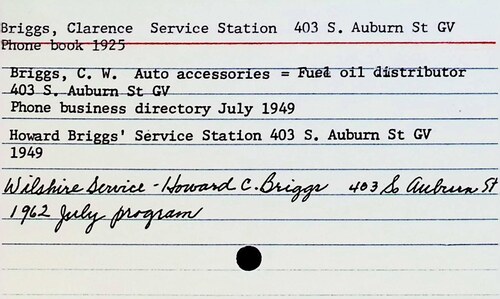 Briggs, Clarence Service Station 403 S. Auburn St GV
Phone book 1925
Briggs, C. W. Auto accessories = Fuel oil distributor
403 S. Auburn St GV
Phone business directory July 1949
Howard Briggs' Service Station 403 S. Auburn St GV
1949
Wilshire Service - Howard C. Briggs 403 So Auburn St
1962 July program